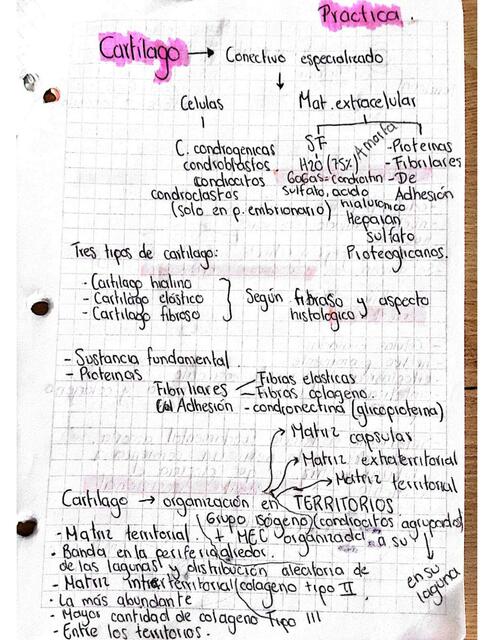 Practica.
Cartilago → Conectivo especializado
Celulas
Mat. extracelular
C. condrogenicas
condroblastos.
condocitos
condroclastos
(solo en p. embrionario)
SF Amorfa
H2O (75%)
GaGas= condroitin
sulfato, acido
hialuronico
Heparan
sulfato
Proteoglicanos.
-Proteinas
-Fibrilares
-De
Adhesión
Tres tipos de cartilago:
- Cartilago hialino
- Cartilago elástico
- Cartilago fibroso
Según fibroso y aspecto
histologico
- Sustancia fundamental.
- Proteinas
Fibriliares
Fibras elasticas
Fibras colageno.
Adhesión - condronectina (glicoproteina)
Matriz
capsular
Matriz extraterritorial
Matriz territorial
Cartilago → organización en TERRITORIOS
Grupo isógeno (condrocitos agrupados)
+ MEC organizada a su
en su
laguna
- Matriz territorial
• Banda en la periferia
de las lagunas y distribución aleatoria de
- Matriz interterritorial colageno tipo II
• La más abundante
- Mayor cantidad de colageno Tipo III
- Entre los territorios.